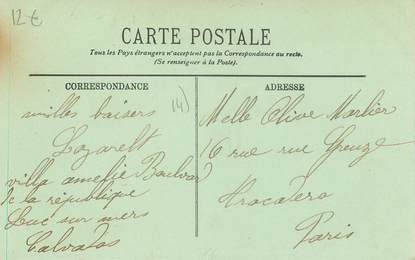 12 €
CARTE POSTALE
Tous les Pays étrangers n'acceptent pas la Correspondance au recto.
(Se renseigner à la Poste).
CORRESPONDANCE
ADRESSE
milles baisers
14)
Lazarelt
villa amelie Boulvard
de la république
Luc sur mers
Calvados
Melle Olive Marlier
16 rue rue Greuze
trocadero
Paris